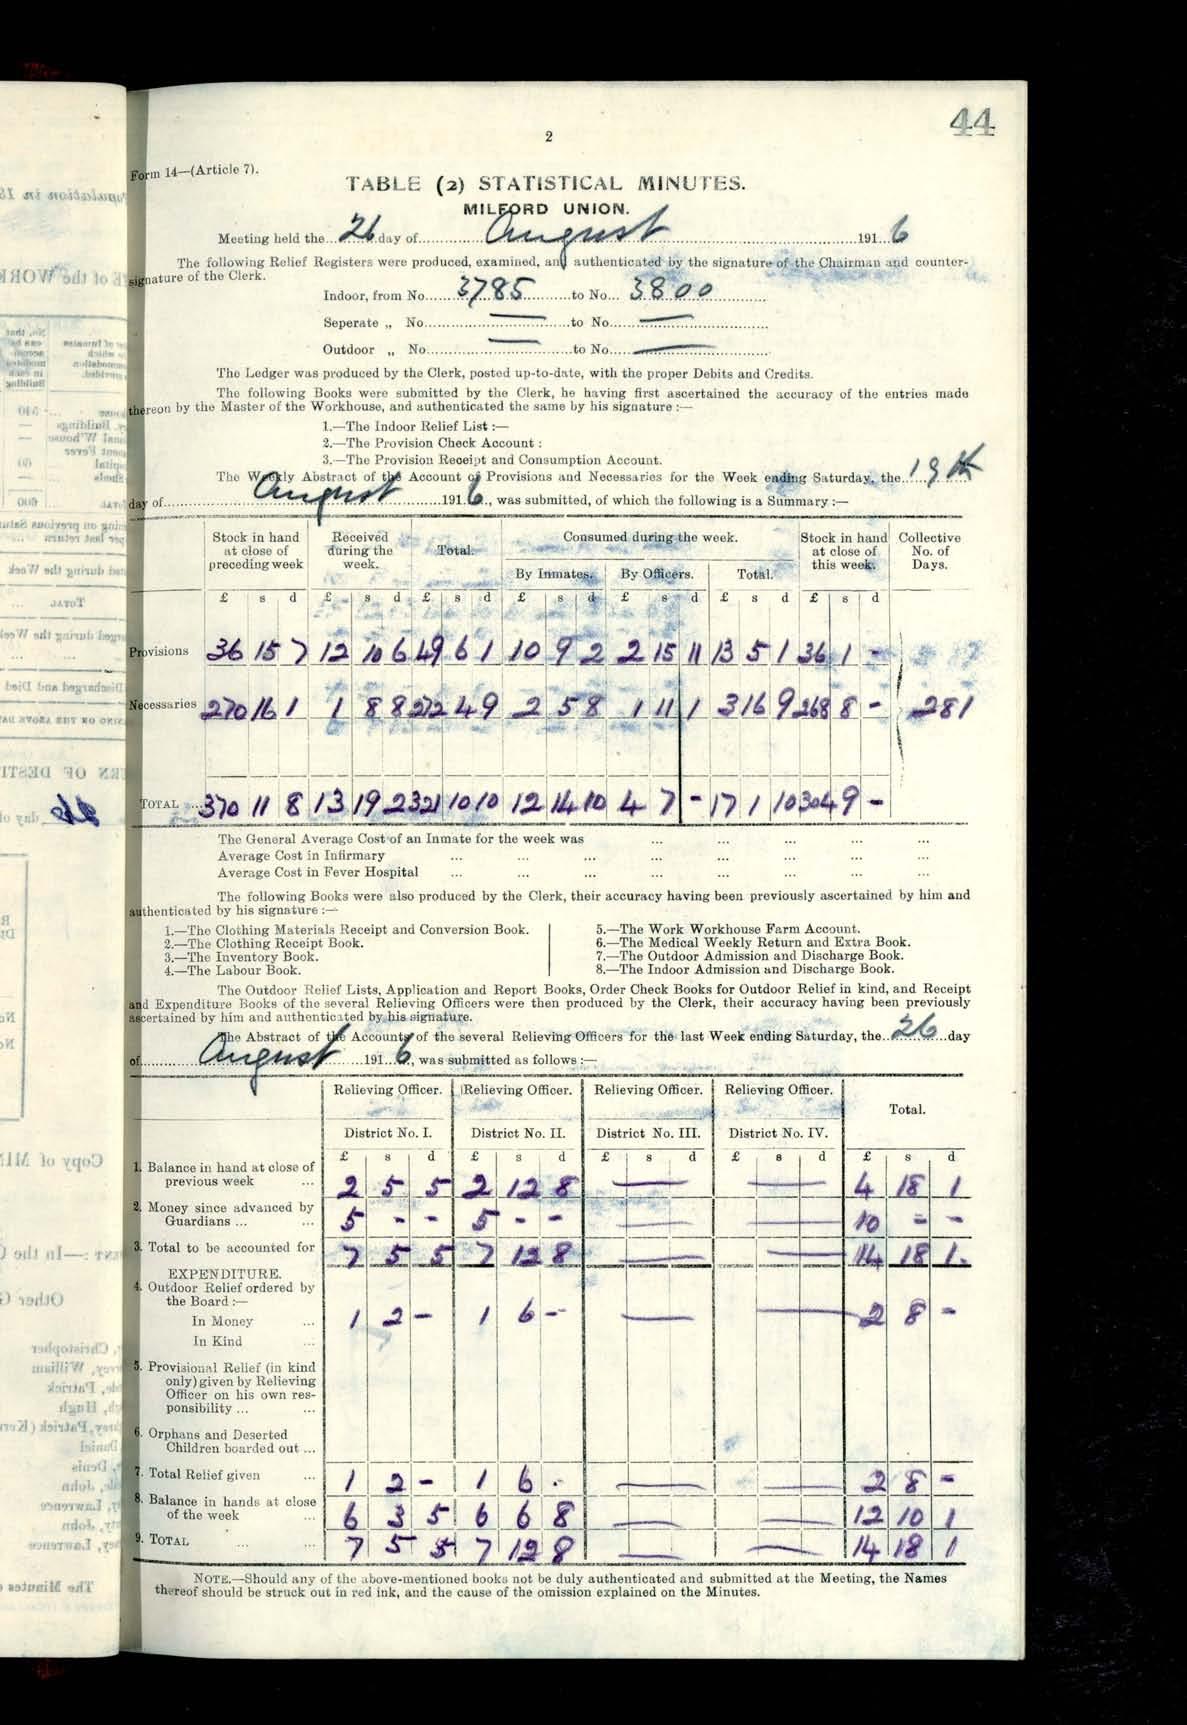 44
2
Form 14—(Article 7).
TABLE (2) STATISTICAL MINUTES.
MILFORD UNION.
Meeting held the...26...day of...August...191...6
The following Relief Registers were produced, examined, and authenticated by the signature of the Chairman and counter-
signature of the Clerk.
Indoor, from No....3785....to No...3800...
Seperate „ No....—....to No....—....
Outdoor „ No....—....to No....—....
The Ledger was produced by the Clerk, posted up-to-date, with the proper Debits and Credits.
The following Books were submitted by the Clerk, he having first ascertained the accuracy of the entries made
thereon by the Master of the Workhouse, and authenticated the same by his signature :—
1.—The Indoor Relief List :—
2.—The Provision Check Account :
3.—The Provision Receipt and Consumption Account.
The Weekly Abstract of the Account of Provisions and Necessaries for the Week ending Saturday, the...19th
day of...August...191...6, was submitted, of which the following is a Summary :—
Stock in hand at close of preceding week | Received during the week. | Total. | Consumed during the week. | Stock in hand at close of this week. | Collective No. of Days.
By Inmates. | By Officers. | Total.
£ s d £ s d £ s d £ s d £ s d £ s d £ s d
Provisions 36 15 7 12 10 6 49 6 1 10 9 2 2 15 11 13 5 1 36 1 -
Necessaries 270 16 1 1 8 8 272 4 9 2 5 8 1 11 1 3 16 9 268 8 - 281
TOTAL ... 370 11 8 13 19 2 321 10 10 12 14 10 4 7 - 17 1 10 304 9 -
The General Average Cost of an Inmate for the week was ... ... ... ... ...
Average Cost in Infirmary ... ... ... ... ... ... ... ...
Average Cost in Fever Hospital ... ... ... ... ... ... ... ...
The following Books were also produced by the Clerk, their accuracy having been previously ascertained by him and
authenticated by his signature :—
1.—The Clothing Materials Receipt and Conversion Book.
2.—The Clothing Receipt Book.
3.—The Inventory Book.
4.—The Labour Book.
5.—The Work Workhouse Farm Account.
6.—The Medical Weekly Return and Extra Book.
7.—The Outdoor Admission and Discharge Book.
8.—The Indoor Admission and Discharge Book.
The Outdoor Relief Lists, Application and Report Books, Order Check Books for Outdoor Relief in kind, and Receipt
and Expenditure Books of the several Relieving Officers were then produced by the Clerk, their accuracy having been previously
ascertained by him and authenticated by his signature.
The Abstract of the Accounts of the several Relieving Officers for the last Week ending Saturday, the...26...day
of...August...191...6, was submitted as follows :—
Relieving Officer. | Relieving Officer. | Relieving Officer. | Relieving Officer. | Total.
District No. I. | District No. II. | District No. III. | District No. IV.
£ s d £ s d £ s d £ s d £ s d
1. Balance in hand at close of
previous week ... 2 5 5 2 12 8 — — 4 18 1
2. Money since advanced by
Guardians ... ... 5 - - 5 - - — — 10 - -
3. Total to be accounted for 7 5 5 7 12 8 — — 14 18 1.
EXPENDITURE.
4. Outdoor Relief ordered by
the Board :—
In Money ... 1 2 - 1 6 - — — 2 8 -
In Kind ...
5. Provisional Relief (in kind
only) given by Relieving
Officer on his own res-
ponsibility ... ...
6. Orphans and Deserted
Children boarded out ...
7. Total Relief given ... 1 2 - 1 6 . — — 2 8 -
8. Balance in hands at close
of the week ... 6 3 5 6 6 8 — — 12 10 1
9. TOTAL ... ... 7 5 5 7 12 8 — — 14 18 1
NOTE.—Should any of the above-mentioned books not be duly authenticated and submitted at the Meeting, the Names
thereof should be struck out in red ink, and the cause of the omission explained on the Minutes.